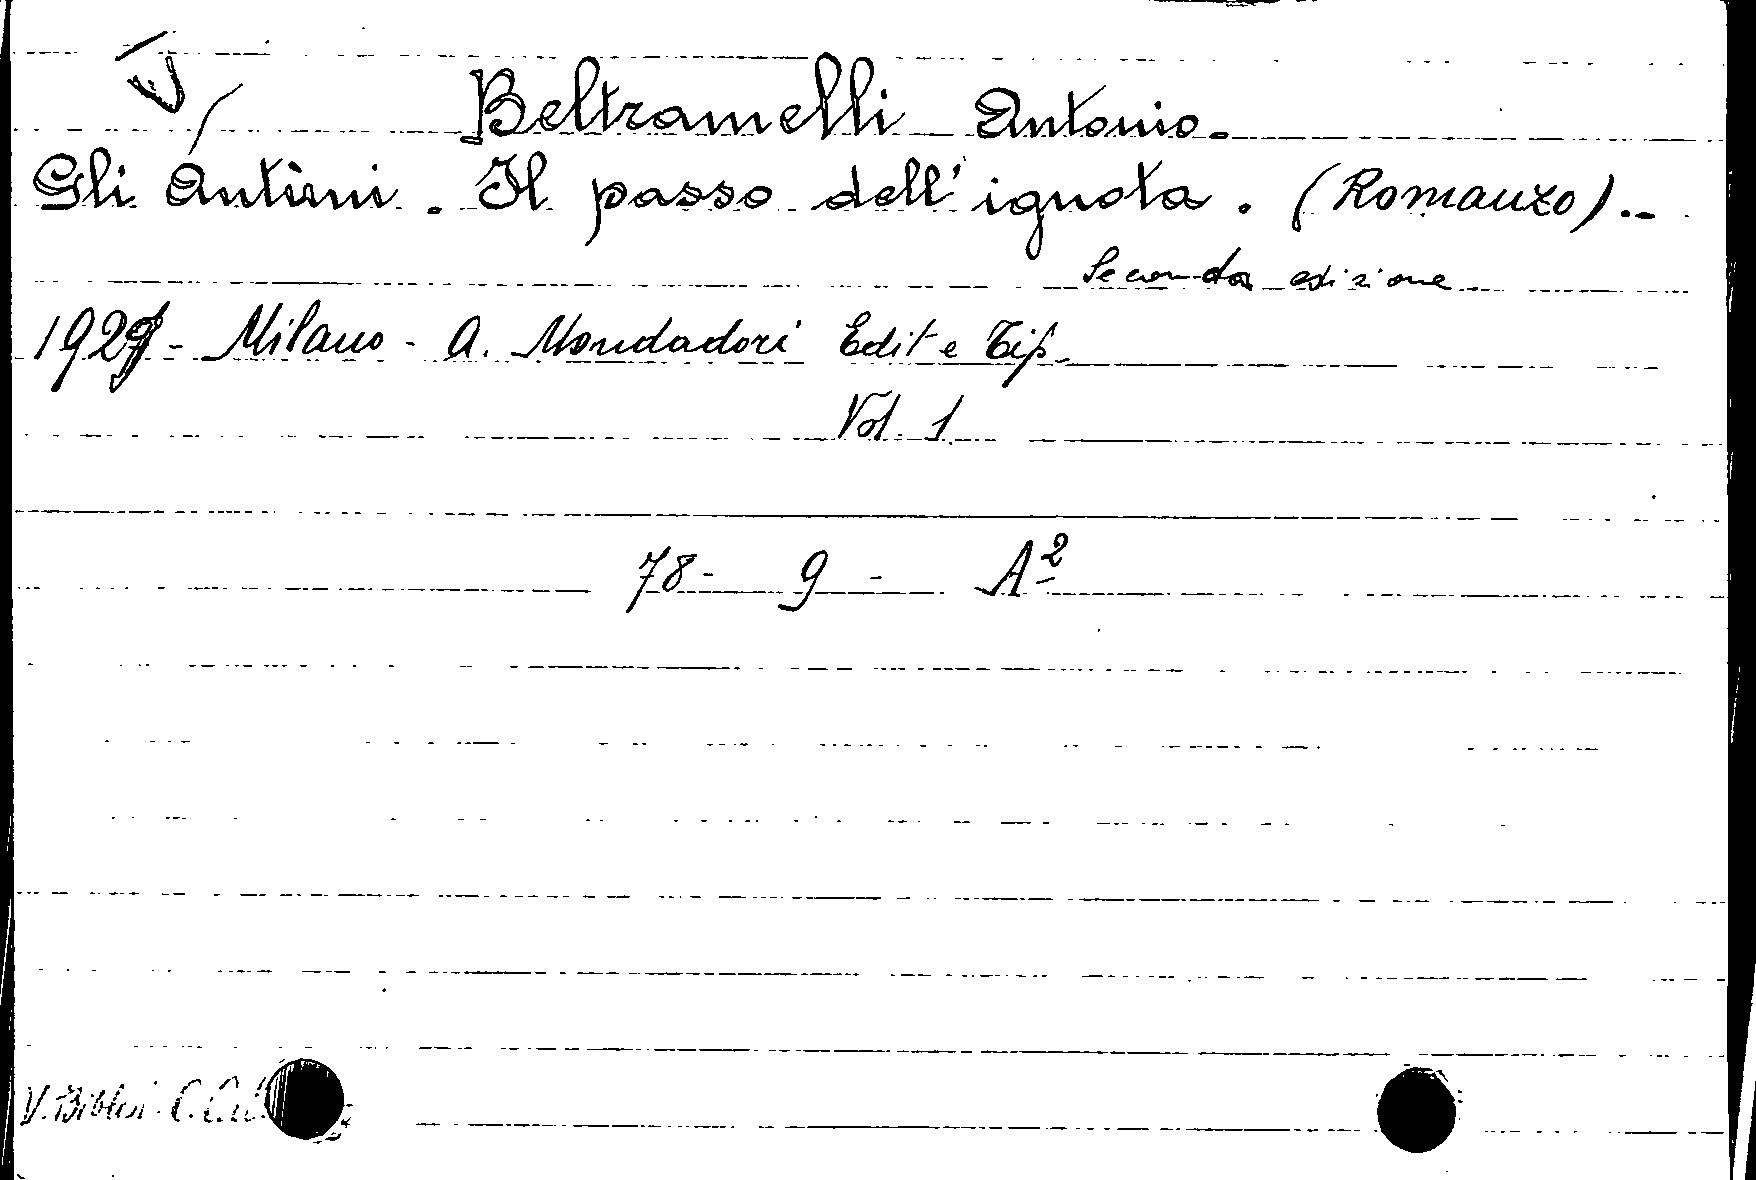 Beltramelli Antonio.
Gli Antimi. Il passo dell'ignota. (Romanzo)..
Seconda edizione
1927 - Milano - A. Mondadori Edit e Tip.
Vol. 1
78 - 9 - A²
V.